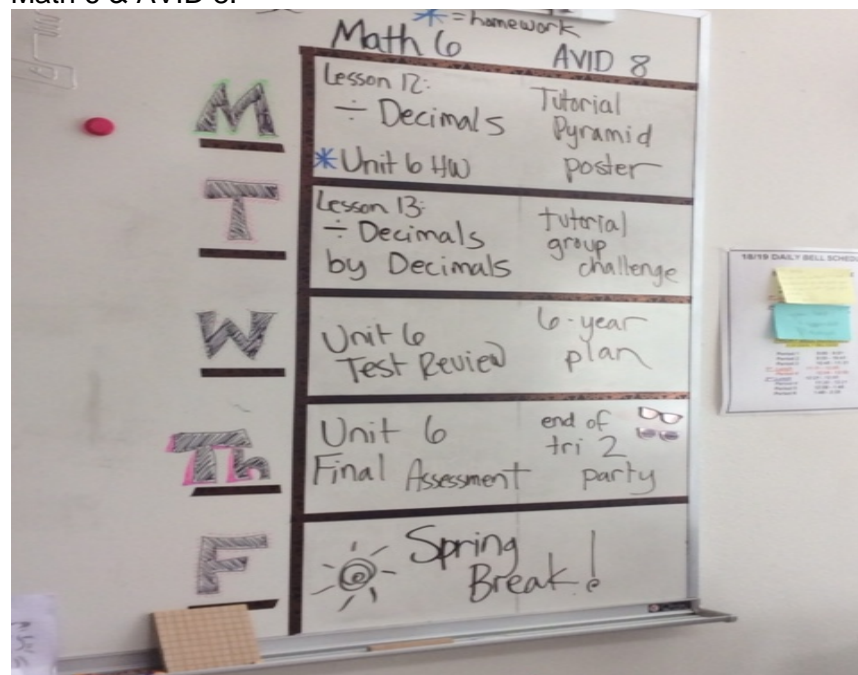 Math 6 & AVID 8.
* = homework
Math 6 AVID 8
M
Lesson 12:
÷ Decimals
*Unit 6 HW
Tutorial
Pyramid
poster
T
Lesson 13:
÷ Decimals
by Decimals
tutorial
group
challenge
W
Unit 6
Test Review
6-year
plan
Th
Unit 6
Final Assessment
end of
tri 2
party
F
Spring
Break!
18/19 DAILY BELL SCHEDU